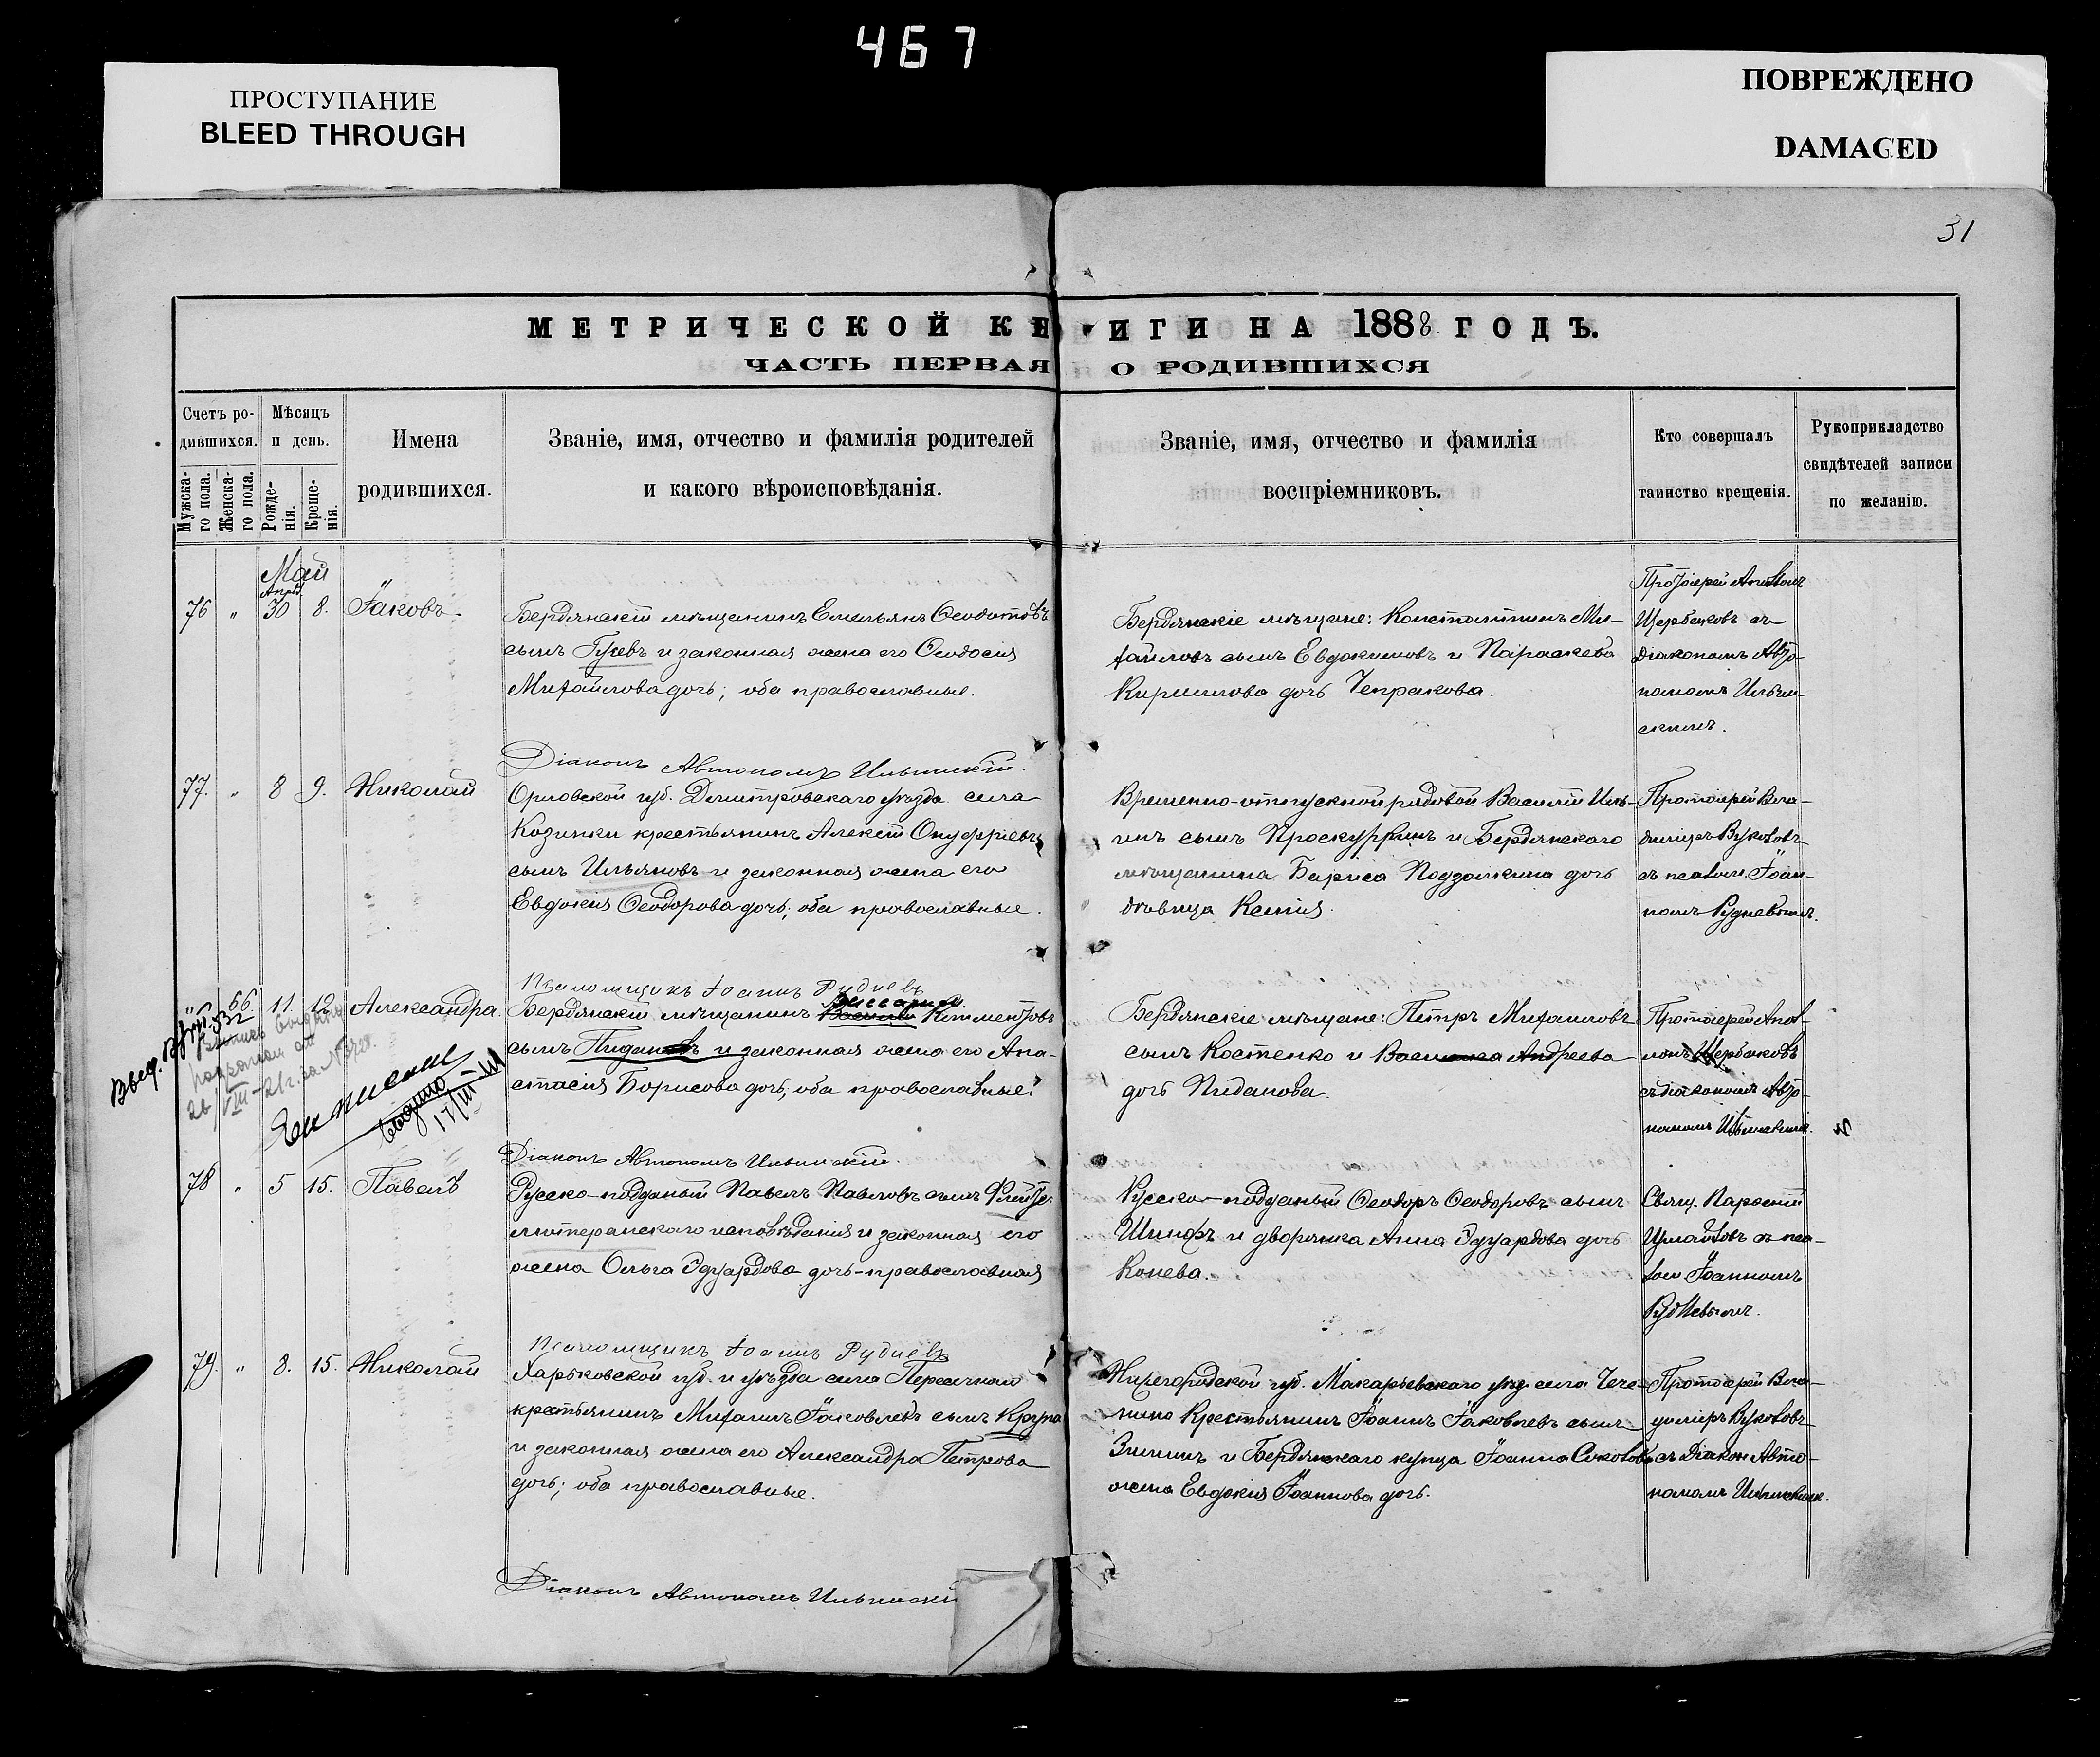 467
ПРОСТУПАНИЕ
BLEED THROUGH
ПОВРЕЖДЕНО
DAMAGED
31
МЕТРИЧЕСКОЙ КНИГИ НА 1888 ГОДЪ.
ЧАСТЬ ПЕРВАЯ О РОДИВШИХСЯ
Счетъ ро-
дившихся.
Мужска-
го пола.
Женска-
го пола.
Мѣсяцъ
и день.
Рожде-
нія.
Креще-
нія.
Имена
родившихся.
Званіе, имя, отчество и фамилія родителей
и какого вѣроисповѣданія.
Званіе, имя, отчество и фамилія
воспріемниковъ.
Кто совершалъ
таинство крещенія.
Рукоприкладство
свидѣтелей записи
по желанію.
Май
Апр.
76 " 30 8. Іаковъ.
Бердянскій мѣщанинъ Емельянъ Ѳеодотовъ
сынъ Гуневъ и законная жена его Ѳеодосія
Михайлова дочь; оба православные.
Бердянскіе мѣщане: Константинъ Ми-
хайловъ сынъ Евдокимовъ и Параскева
Кириллова дочь Чепракова.
Протоіерей
Щербаковъ съ
діакономъ Авто-
номомъ Ильин-
скимъ.
Діаконъ Автономъ Ильинскій.
77. " 8 9. Николай
Орловской губ. Димитровскаго уѣзда села
Козинки крестьянинъ Алексій Онуфріевъ
сынъ Ильяновъ и законная жена его
Евдокія Ѳеодорова дочь; оба православные.
Временно-отпускной рядовой Василій Иль-
инъ сынъ Проскуринъ и Бердянскаго
мѣщанина Бориса Подзолкина дочь
дѣвица Ксенія.
Протоіерей Вла-
диміръ Вуковъ
съ псалом. Іоан-
номъ Рудневымъ.
Псаломщикъ Іоаннъ Рудневъ
" 66. 11. 12. Александра.
Бердянскій мѣщанинъ Василій Виссаріонъ Климентовъ
сынъ Пидановъ и законная жена его Ана-
стасія Борисова дочь; оба православные.
Бердянскіе мѣщане: Петръ Михаиловъ
сынъ Костенко и Андреева
дочь Пиданова.
Протоіерей
Щербаковъ
съ діакономъ Авто-
номомъ Ильинскимъ.
Діаконъ Автономъ Ильинскій.
78 " 5 15. Павелъ
Русско-подданый Павелъ Павловъ сынъ
лютеранскаго исповѣданія и законная его
жена Ольга Эдуардова дочь-православная
Русско-подданый Ѳеодоръ Ѳеодоровъ сынъ
Шинфъ и дворянка Анна Эдуардова дочь
Конева.
Свящ.
съ пса-
лом. Іоанномъ
Рудневымъ.
Псаломщикъ Іоаннъ Рудневъ
79. " 8. 15. Николай
Харьковской губ. и уѣзда села Пересѣчнаго
крестьянинъ Михаилъ Іаковлевъ сынъ Крупа
и законная жена его Александра Петрова
дочь; оба православные.
Нижегородской губ. Макарьевскаго уѣзд. села
Крестьянинъ Іоаннъ Іаковлевъ сынъ
Зининъ и Бердянскаго купца Іоанна
жена Евдокія Іоаннова дочь.
Протоіерей Вла-
диміръ Вуковъ
съ діакон. Авто-
номомъ Ильинским.
Діаконъ Автономъ Ильинскій